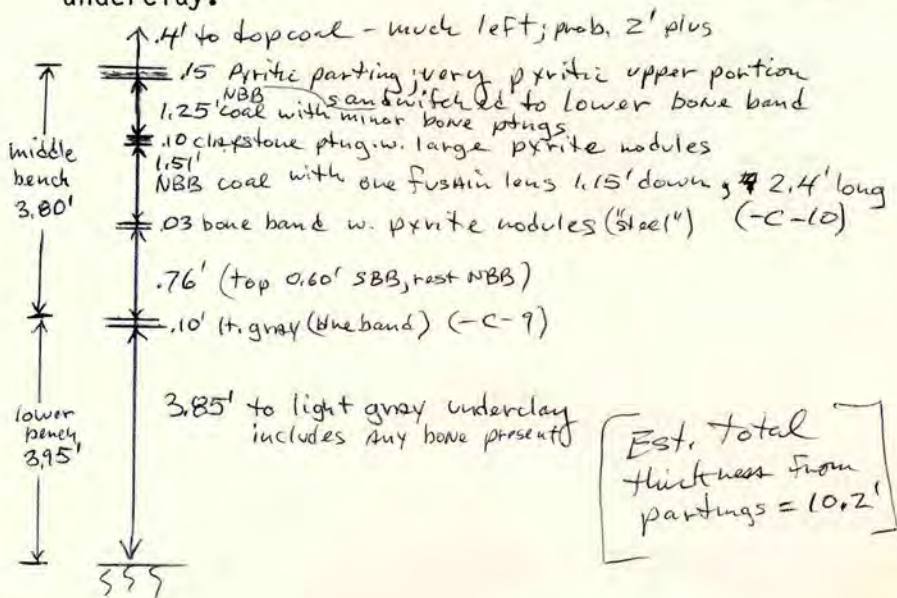 underclay.
.4' to topcoal - much left; prob. 2' plus
.15 Pyritic parting; very pyritic upper portion
NBB sandwitched to lower bone band
1.25' coal with minor bone ptngs
.10 claystone ptng. w. large pyrite nodules
1.51'
NBB coal with one fusain lens 1.15' down, 2.4' long
(-C-10)
.03 bone band w. pyrite nodules ("steel")
.76' (top 0.60' SBB, rest NBB)
.10' lt. gray (blue band) (-C-9)
3.85' to light gray underclay
includes any bone present
middle
bench
3.80'
lower
bench
3.95'
Est. total
thickness from
partings = 10.2'